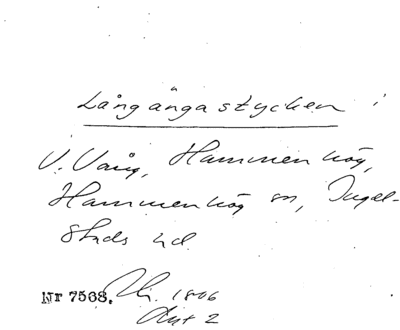 Långängastycken i
V. Vång, Hammenhög,
Hammenhög sn, Ingel-
stads hd
Nr 7568. 1806
Akt 2